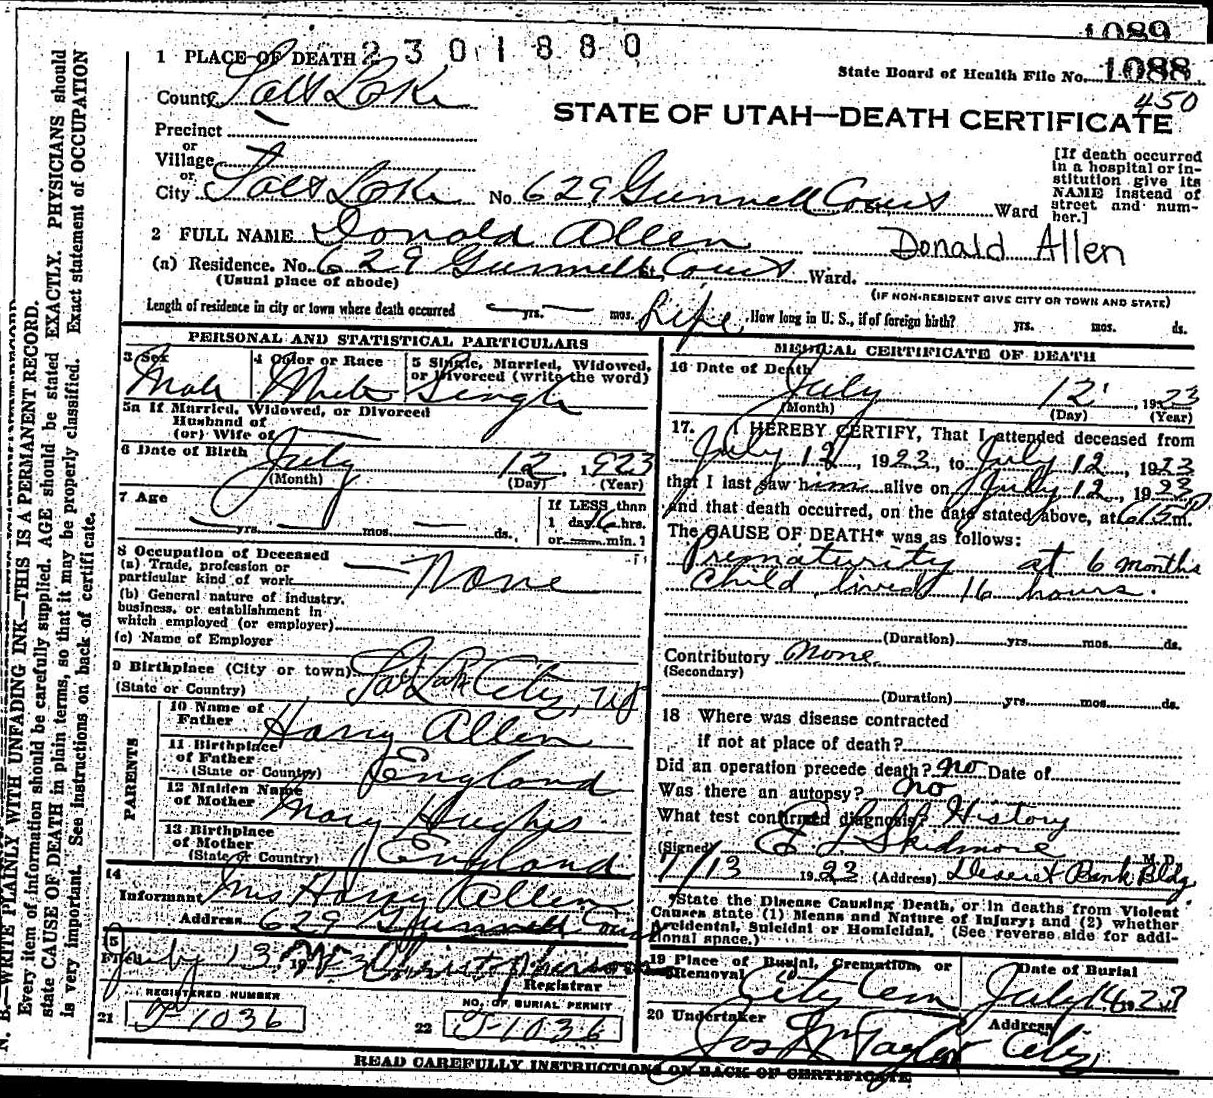 1089
1 PLACE OF DEATH 2301880
State Board of Health File No. 1088
450
County Salt Lake
STATE OF UTAH—DEATH CERTIFICATE
Precinct
or
Village
or
City Salt Lake No. 629 Gunnell Court St. Ward
[If death occurred
in a hospital or in-
stitution give its
NAME instead of
street and num-
ber.]
2 FULL NAME Donald Allen Donald Allen
(a) Residence. No. 629 Gunnell St. Court Ward.
(Usual place of abode)
(IF NON-RESIDENT GIVE CITY OR TOWN AND STATE)
Length of residence in city or town where death occurred yrs. mos. Life How long in U. S., if of foreign birth? yrs. mos. ds.
PERSONAL AND STATISTICAL PARTICULARS
3 Sex 4 Color or Race 5 Single, Married, Widowed,
or Divorced (write the word)
Male White Single
5a If Married, Widowed, or Divorced
Husband of
(or) Wife of
6 Date of Birth July 12, 1923
(Month) (Day) (Year)
7 Age
yrs. mos. ds.
If LESS than
1 day 16 hrs.
or min.?
8 Occupation of Deceased
(a) Trade, profession or
particular kind of work None
(b) General nature of industry,
business, or establishment in
which employed (or employer)
(c) Name of Employer
9 Birthplace (City or town) Salt Lake City, Ut
(State or Country)
PARENTS
10 Name of
Father Harry Allen
11 Birthplace
of Father
(State or Country) England
12 Maiden Name
of Mother Mary Hughes
13 Birthplace
of Mother
(State or Country) England
14
Informant Mrs Harry Allen
Address 629 Gunnell Court
15
July 13
Registrar
REGISTERED NUMBER NO. OF BURIAL PERMIT
21 J-1036 22 J-1036
MEDICAL CERTIFICATE OF DEATH
16 Date of Death
July 12, 1923
(Month) (Day) (Year)
17. I HEREBY CERTIFY, That I attended deceased from
July 12, 1923, to July 12, 1923
that I last saw him alive on July 12, 1923
and that death occurred, on the date stated above, at 615P m.
The CAUSE OF DEATH* was as follows:
Prematurity at 6 months
Child lived 16 hours.
(Duration) yrs. mos. ds.
Contributory none
(Secondary)
(Duration) yrs. mos. ds.
18 Where was disease contracted
if not at place of death?
Did an operation precede death? no Date of
Was there an autopsy? no
What test confirmed diagnosis? History
(Signed) E L Skidmore M. D.
7/13 1923 (Address) Deseret Bank Bldg
*State the Disease Causing Death, or in deaths from Violent
Causes state (1) Means and Nature of Injury; and (2) whether
Accidental, Suicidal or Homicidal. (See reverse side for addi-
tional space.)
19 Place of Burial, Cremation, or
Removal Date of Burial
City Cem July 14 1923
20 Undertaker Address
Jos Wm Taylor City
READ CAREFULLY INSTRUCTIONS ON BACK OF CERTIFICATE
N. B.—WRITE PLAINLY WITH UNFADING INK—THIS IS A PERMANENT RECORD.
Every item of information should be carefully supplied. AGE should be stated EXACTLY. PHYSICIANS should
state CAUSE OF DEATH in plain terms, so that it may be properly classified. Exact statement of OCCUPATION
is very important. See instructions on back of certificate.